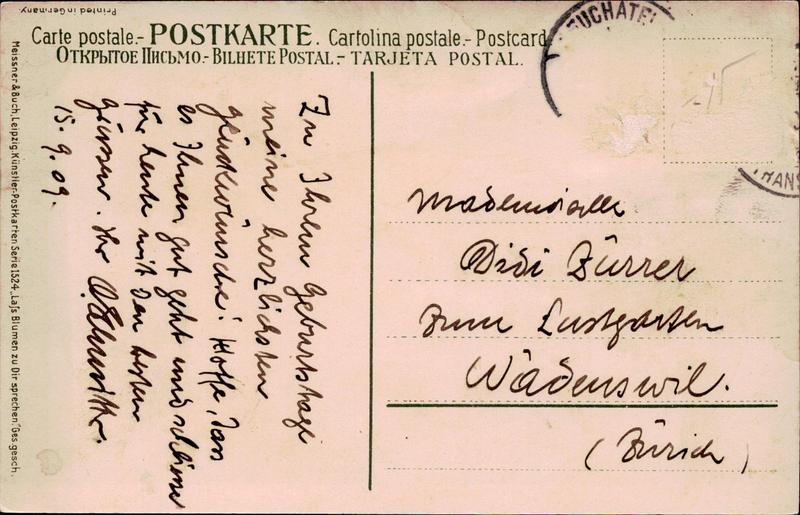 Printed in Germany
Carte postale.- POSTKARTE. Cartolina postale.- Postcard
ОТКРЫТОЕ ПИСЬМО.- BILHETE POSTAL.- TARJETA POSTAL.
Meissner & Buch, Leipzig. Künstler-Postkarten Serie 1524. „Laſs Blumen zu Dir sprechen." Ges. gesch.
UCHATEL
-45
Zu Ihrem Geburtstage
meine herzlichsten
Glückwünsche! Hoffe, dass
es Ihnen gut geht und
für heute mit den besten
Grüssen. Ihr
15.9.09.
Mademoiselle
Didi Zürrer
Zum Lustgarten
Wädenswil.
(Zürich)